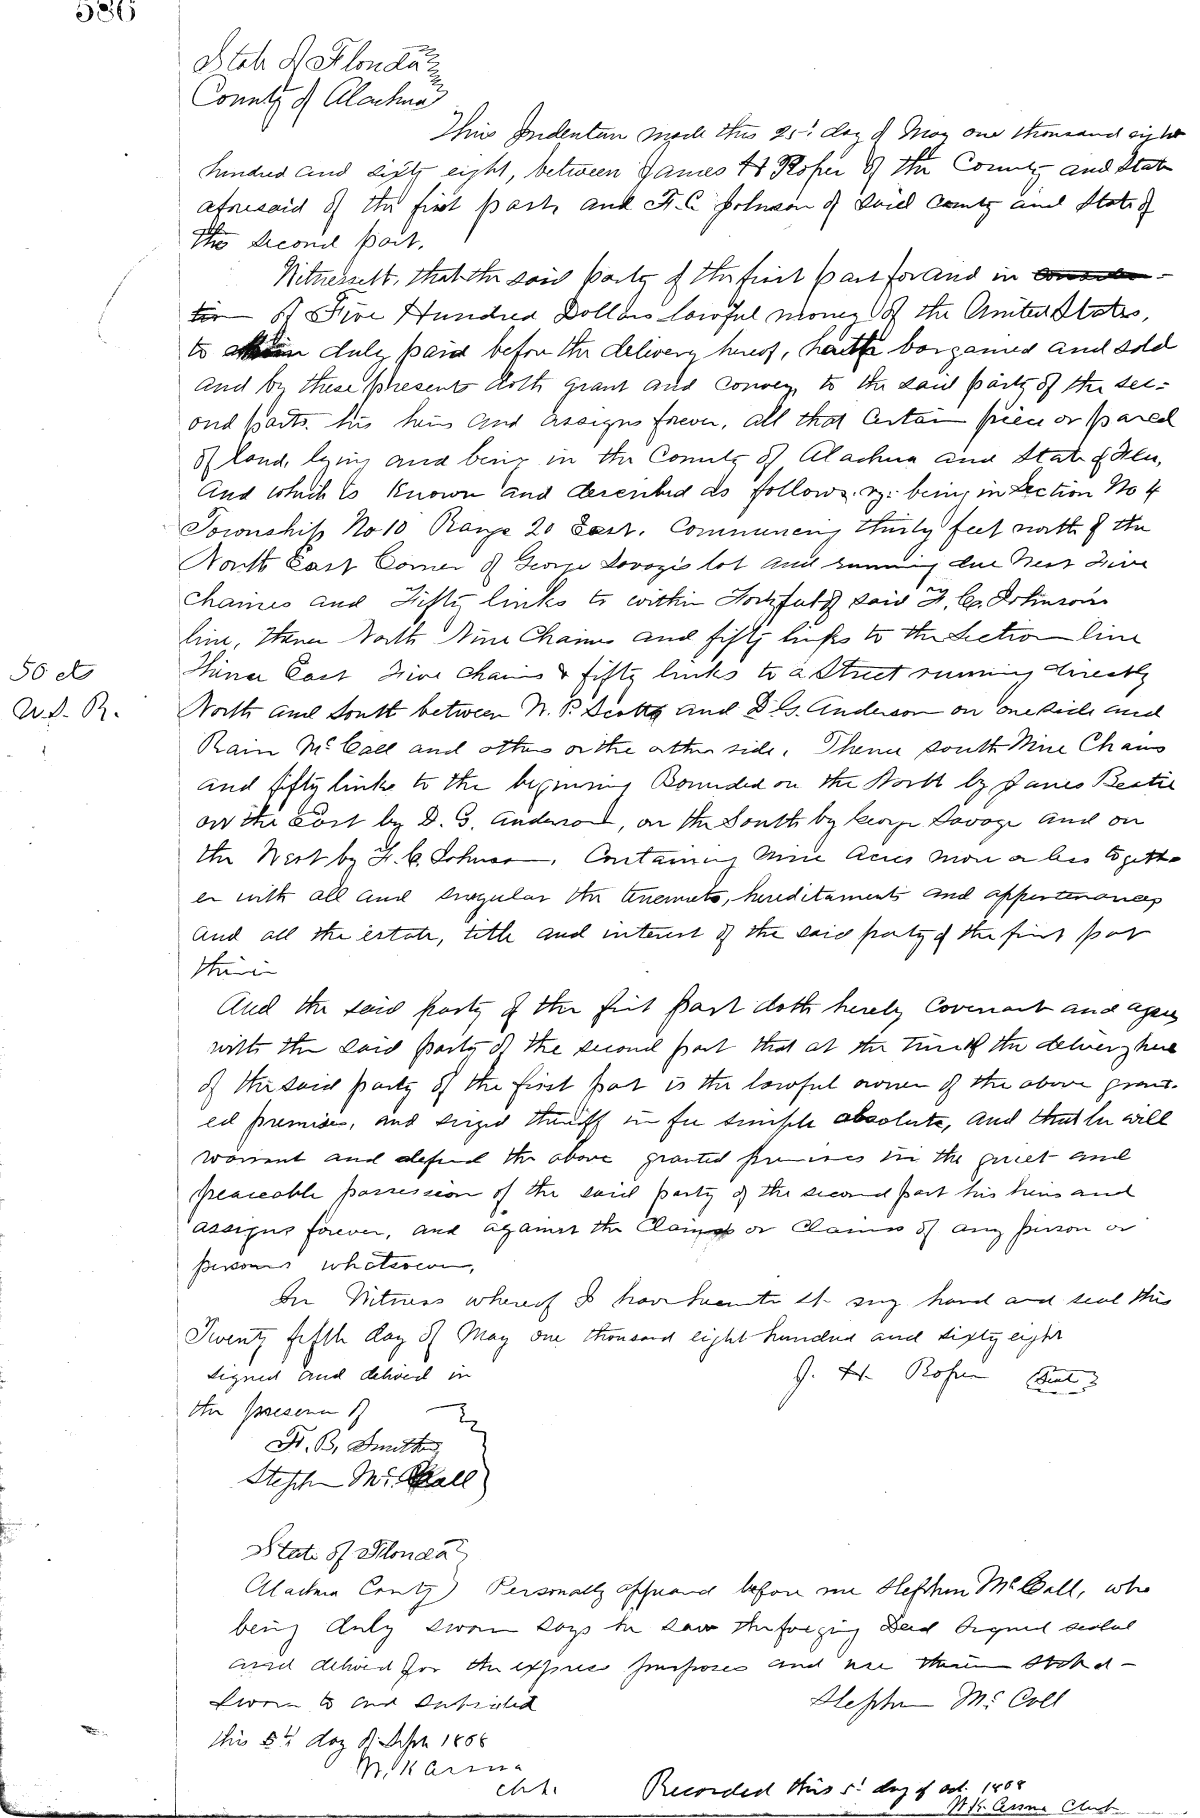 586
State of Florida
County of Alachua
This Indenture made this 25th day of May one thousand eight
hundred and sixty eight, between James H Roper of the County and State
aforesaid of the first part, and F. C. Johnson of said County and State of
the second part.
Witnesseth, that the said party of the first part for and in considera-
tion of Five Hundred Dollars lawful money of the United States,
to him duly paid before the delivery hereof, hath bargained and sold
and by these presents doth grant and convey, to the said party of the sec-
ond part, his heirs and assigns forever, all that certain piece or parcel
of land, lying and being in the County of Alachua and State of Fla,
And which is known and described as follows. viz: being in Section No 4
Township No 10 Range 20 East. Commencing thirty feet north of the
North East Corner of George Savage's lot and running due West Five
chaines and Fifty links to within Forty feet of said F. C. Johnson's
line, thence North Nine Chains and fifty links to the Section line
Thence East Five chains & fifty links to a Street running directly
50 cts
U.S. R.
North and South between W. P. Scott and D. G. Anderson on one side and
Rain McCall and others on the other side. Thence south Nine Chains
and fifty links to the beginning Bounded on the North by James Beatie
on the East by D. G. Anderson, on the South by George Savage and on
the West by F. C. Johnson. Containing Nine Acres more or less togeth-
er with all and singular the tenements, hereditaments and appertenances
and all the estate, title and interest of the said party of the first part
therein
And the said party of the first part doth hereby Covenant and agree
with the said party of the second part that at the time of the delivery here
of the said party of the first part is the lawful owner of the above grant-
ed premises, and seized thereoff in fee simple absolute, and that he will
warrant and defend the above granted premises in the quiet and
peaceable possession of the said party of the second part his heirs and
assigns forever, and against the Claim or Claims of any person or
persons whatsoever,
In Witness whereof I have hereunto set my hand and seal this
Twenty fifth day of May one thousand eight hundred and sixty eight
signed and delivered in J. H. Roper Seal
the presence of
B. Smith
Stephen McCall
State of Florida
Alachua County) Personally appeared before me Stephen McCall, who
being duly sworn says he saw the foregoing Deed Signed sealed
and delivered for the express purposes and use therein stated-
Sworn to and subscribed Stephen McCall
this 5th day of Sept 1868
Clerk.
Recorded this 5th day of Oct. 1868
Clerk